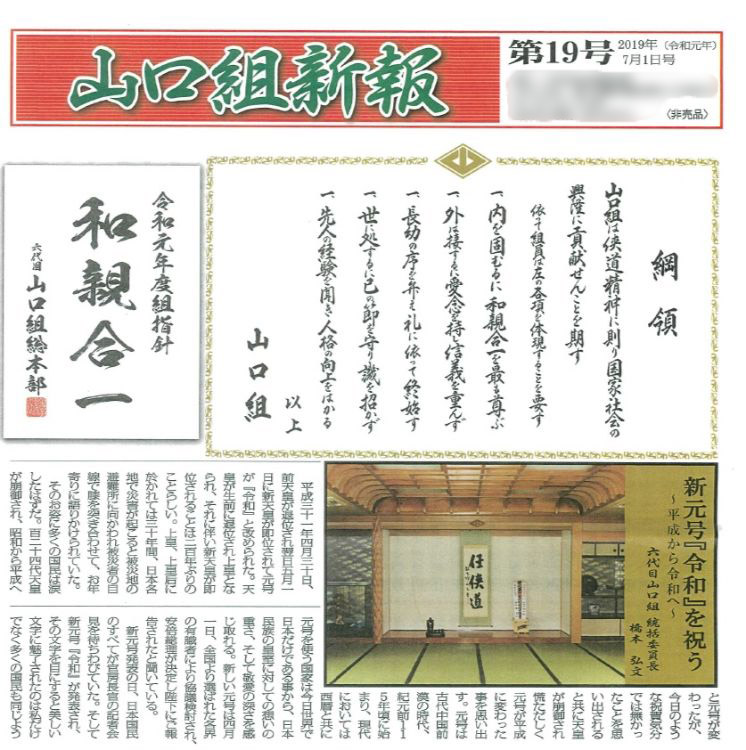 山口組新報
第19号
2019年（令和元年）
7月1日号
（非売品）
綱領
山口組は侠道精神に則り国家社会の
興隆に貢献せんことを期す
依て組員は左の各項を体現することを要す
一、内を固むるに和親合一を最も尊ぶ
一、外は接するに愛念を持し信義を重んず
一、長幼の序を弁え礼に依って終始す
一、世に処するに己の節を守り譏を招かず
一、先人の経験を聞き人格の向上をはかる
以上
山口組
令和元年度組指針
和親合一
六代目
山口組総本部
新元号『令和』を祝う
～平成から令和へ～
六代目山口組 統括委員長
橋本 弘文
任侠道
平成三十一年四月三十日、
前天皇が退位され翌日五月一
日に新天皇が即位されて元号
が『令和』と改められた。天
皇が生前に退位され上皇とな
られ、それに伴い新天皇が即
位されることは二百年ぶりの
ことらしい。上皇、上皇后に
於かれては三十年間、日本各
地で災害が起こると被災地の
避難所に向かわれ被災者の目
線で膝を突き合わせて、お年
寄りに語りかけられていた。
そのお姿に多くの国民は涙
したはずだ。百二十四代天皇
が崩御され、昭和から平成へ
と元号が変
わったが、
今日のよう
な祝賀気分
では無かっ
たことを思
い出される
と共に天皇
が崩御され
慌ただしく
元号が平成
に変わった
事を思い出
す。元号は
古代中国前
漢の時代、
紀元前11
5年頃に始
まり、現代
においては
西暦と共に
元号を使う国家は今日世界で
日本だけである事から、日本
民族の皇室に対しての想いの
重さ、そして敬愛の深さを感
じ取れる。新しい元号は四月
一日、全国より選ばれた各界
の有識者により協議検討され、
安倍総理が決定し陛下にご報
告されたと聞いている。
新元号発表の日、日本国民
のすべてが官房長官の記者会
見を待ちわびていた。そして
新元号『令和』が発表され、
その文字を目にすると美しい
文字に魅了されたのは私だけ
でなく多くの国民も同じよう